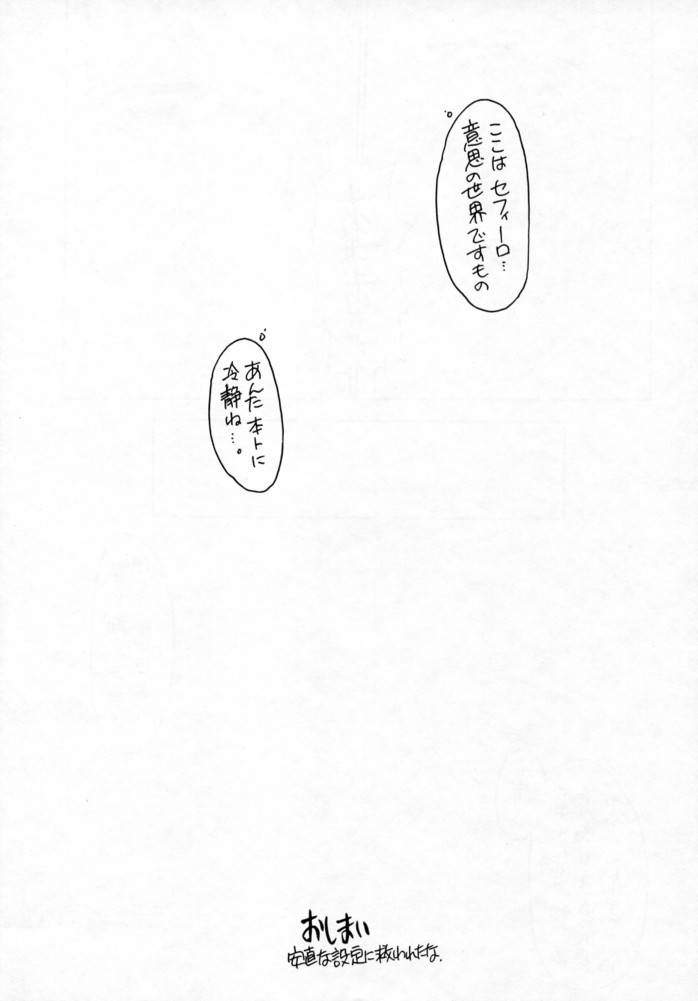 ここは セフィーロ…
意思の世界ですもの
あんた本トに
冷静ね…。
おしまい
安直な設定に救われたな.